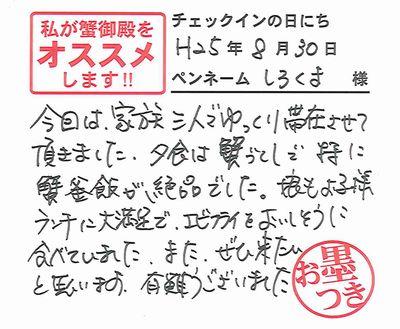 私が蟹御殿を
オススメ
します!!
チェックインの日にち
H25年8月30日
ペンネーム しろくま 様
今日は、家族三人でゆっくり帯在させて
頂きました。夕食は蟹づくしで特に
蟹釜飯が絶品でした。娘もお子様
ランチに大満足で、エビフライをおいしそうに
食べていました。また、ぜひ来たい
と思います。有難うございました
お墨つき